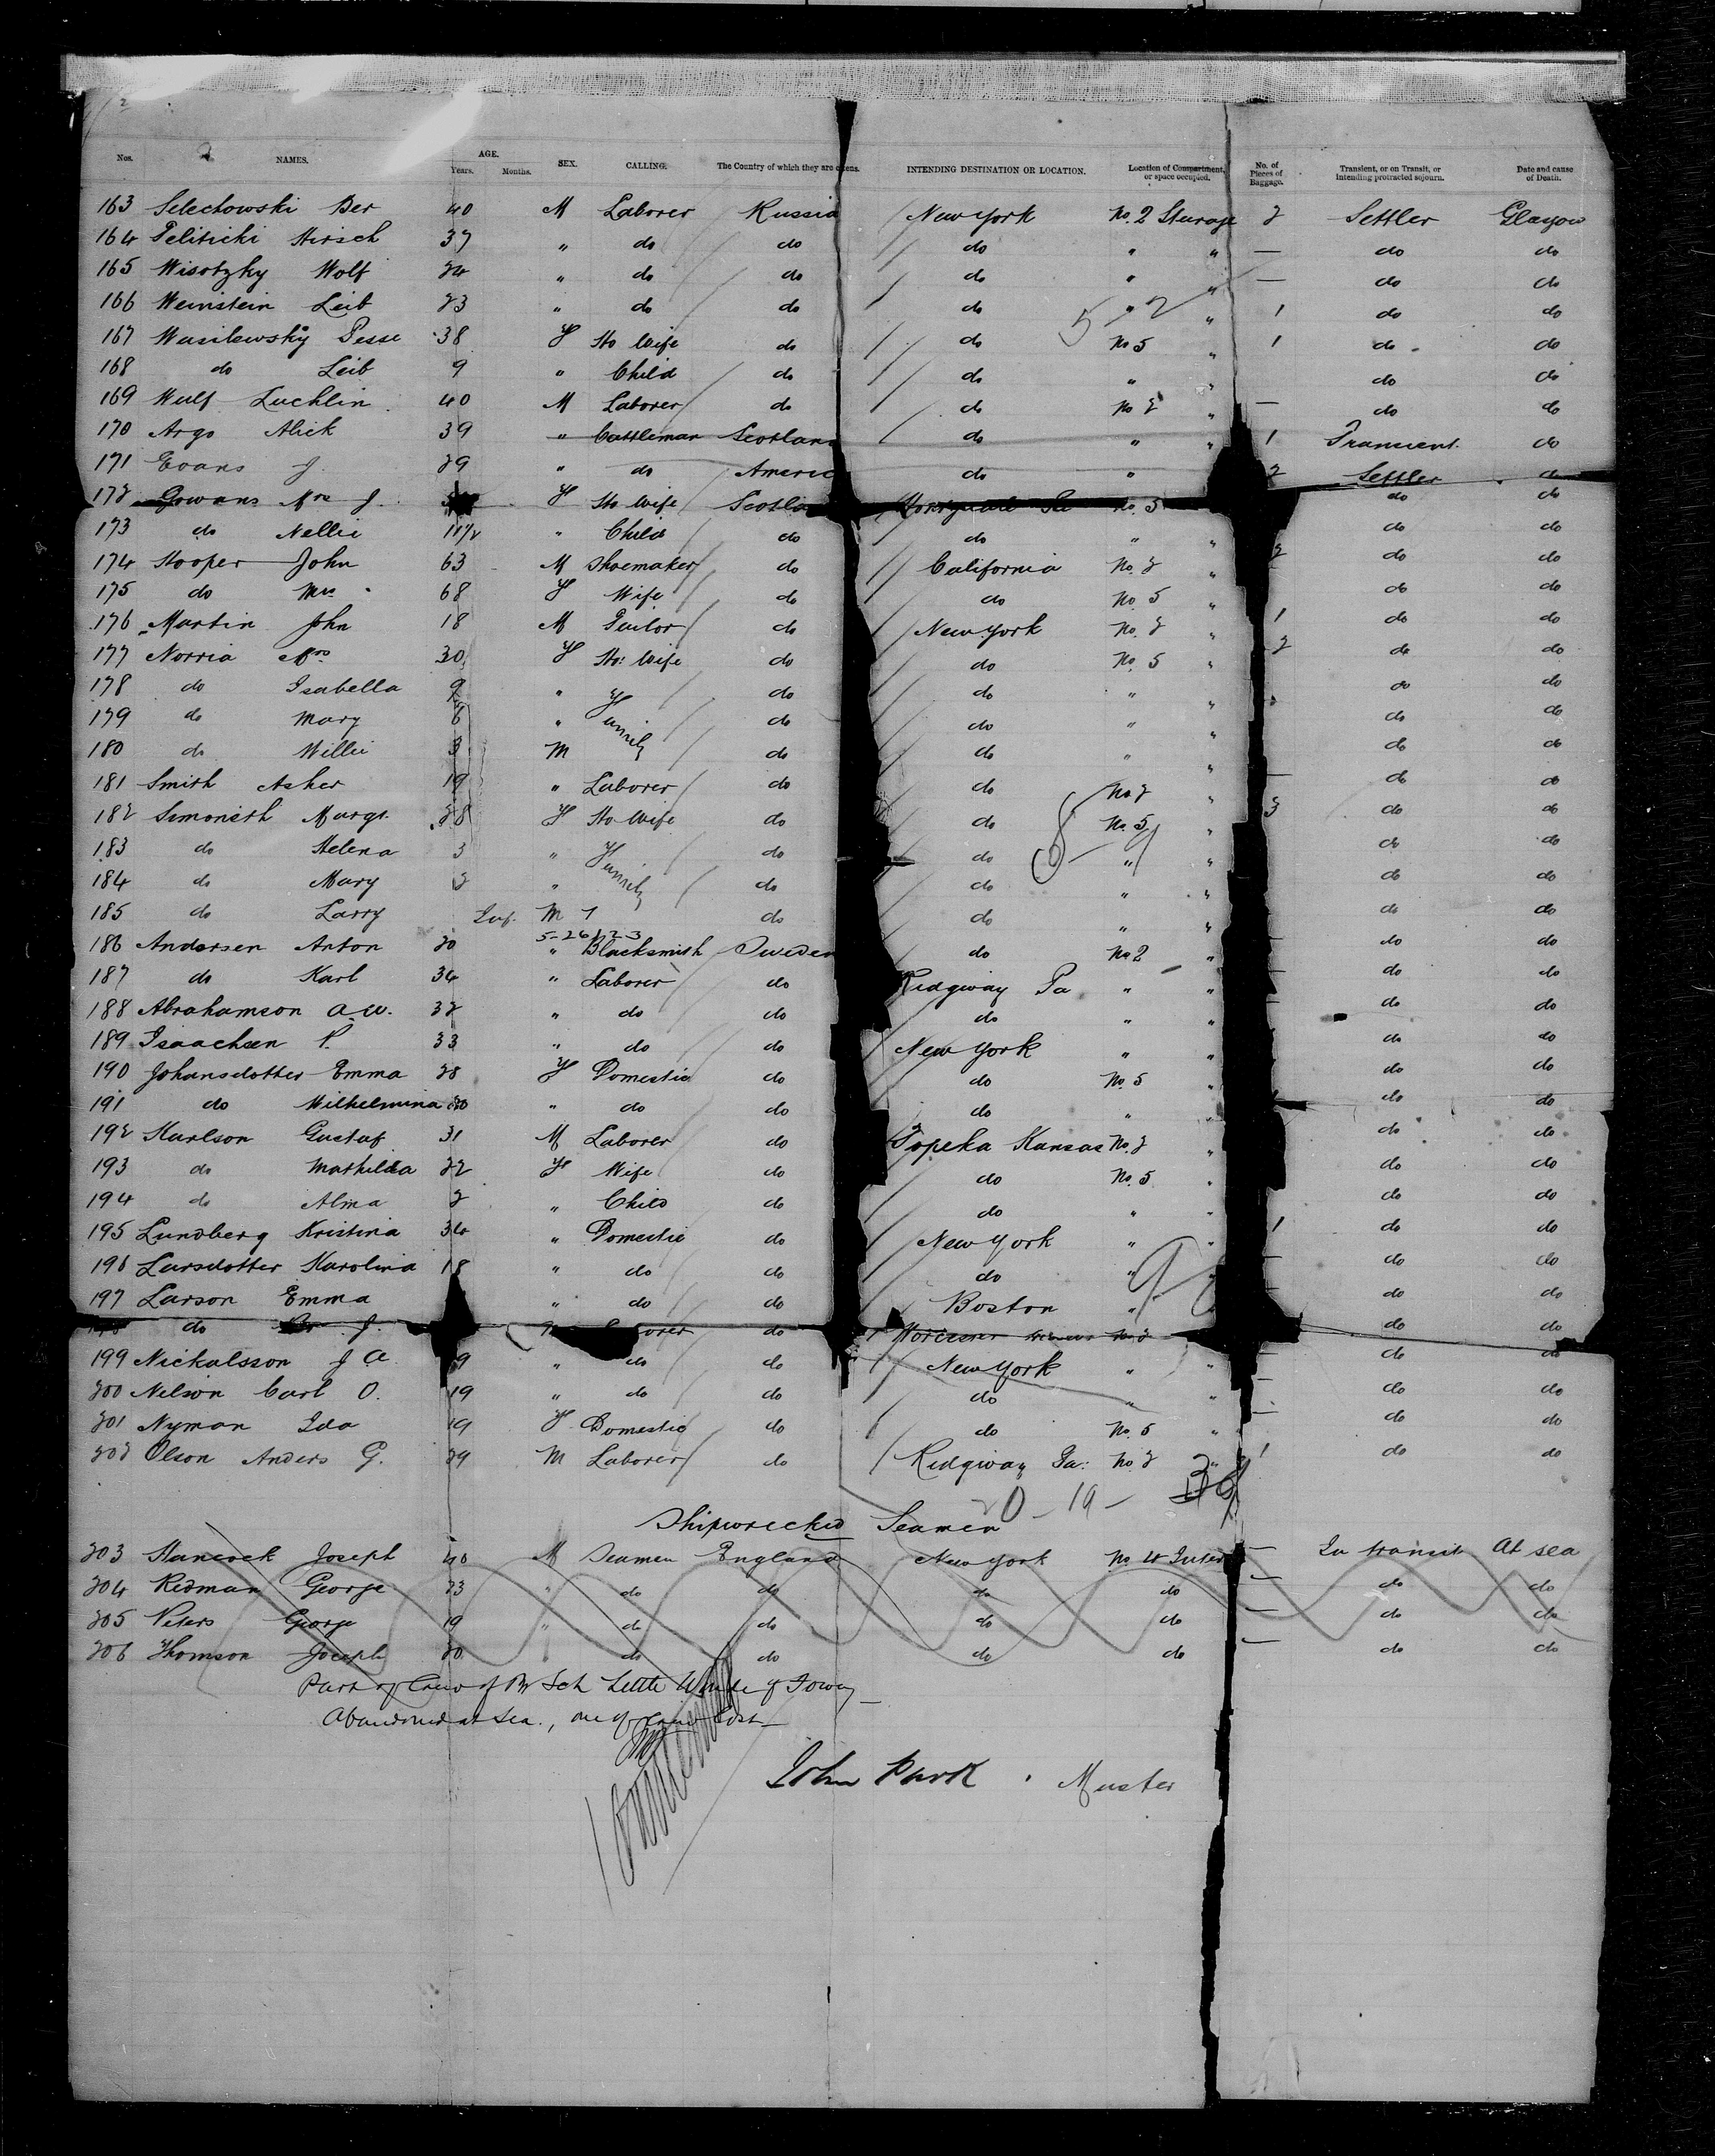 Nos. NAMES. AGE. Years. Months. SEX. CALLING. The Country of which they are INTENDING DESTINATION OR LOCATION. Location of Compartment, or space occupied. No. of Pieces of Baggage. Transient, or on Transit, or Intending protracted sojourn. Date and cause of Death.
163 Selechowski Ber 40 M Laborer Russia New York No. 2 Sturage 2 Settler Glasgow
164 Pelitichi Hirsch 37 " do do do " " — do do
165 Wisotzky Wolf 24 " do do do " " — do do
166 Weinstein Leib 23 " do do do " " 1 do do
167 Wasilewsky Pesse 38 F Ho Wife do do No 5 " 1 do do
168 do Leib 9 " Child do do " " do do
169 Wulf Luchlin 40 M Laborer do do No 2 " — do do
170 Argo Alick 39 " Cattleman Scotland do " " 1 Transient do
171 Evans J. 29 " do Americ do " 2 Settler do
172 Gowans Mrs J. F Ho Wife Scotla No. 5 do do
173 do Nellie 11/2 " Child do do " " do do
174 Hooper John 63 M Shoemaker do California No. 2 " 2 do do
175 do Mrs 68 F Wife do do No. 5 " do do
176 Martin John 18 M Tailor do New York No. 2 " 1 do do
177 Norria Mrs 30 F Ho: Wife do do No. 5 " 2 do do
178 do Isabella 9 " Family do do " " do do
179 do Mary 6 " do do " " do do
180 do Willie 3 M do do " " do do
181 Smith Asher 19 " Laborer do do No 2 " — do do
182 Simoneth Margt. 28 F Ho Wife do do No. 5 " 3 do do
183 do Helena 3 " Family do do " " do do
184 do Mary 2 " do do " " do do
185 do Larry Inf. M do do " " do do
5-26123
186 Andersen Anton 20 " Blacksmith Sweden do No 2 " do do
187 do Karl 34 " Laborer do Ridgway Pa " " do do
188 Abrahamson A.W. 32 " do do do " " do do
189 Isaachsen P. 33 " do do New York " " do do
190 Johansdotter Emma 28 F Domestic do do No. 5 " do do
191 do Wilhelmina 20 " do do do " " do do
192 Karlson Gustaf 31 M Laborer do Topeka Kansas No. 2 " do do
193 do Mathilda 22 F Wife do do No. 5 " do do
194 do Alma 2 " Child do do " " do do
195 Lundberg Kristina 34 " Domestic do New York " " 1 do do
196 Larsdotter Karolina 18 " do do do " do do
197 Larson Emma " do do Boston " do do
do J. do No 2 do do
199 Nickalsson J A 9 " do do New York " " — do do
200 Nelson Carl O. 19 " do do do " " — do do
201 Nyman Ida 19 F Domestic do do No. 5 " — do do
202 Olson Anders G. 29 M Laborer do Ridgway Pa: No. 2 " 1 do do
20 - 19 -
Shipwrecked Seamen
203 Hancock Joseph 40 M Seamen England New York No 4 Inter — In transit At sea
204 Redman George 23 " do do do do — do do
205 Peters George 19 " do do do do — do do
206 Thomson Joseph 20 do do do do — do do
Part of Crew of Br Sch Little of Fowey
Abandoned at Sea., one of crew Lost
John Park . Master